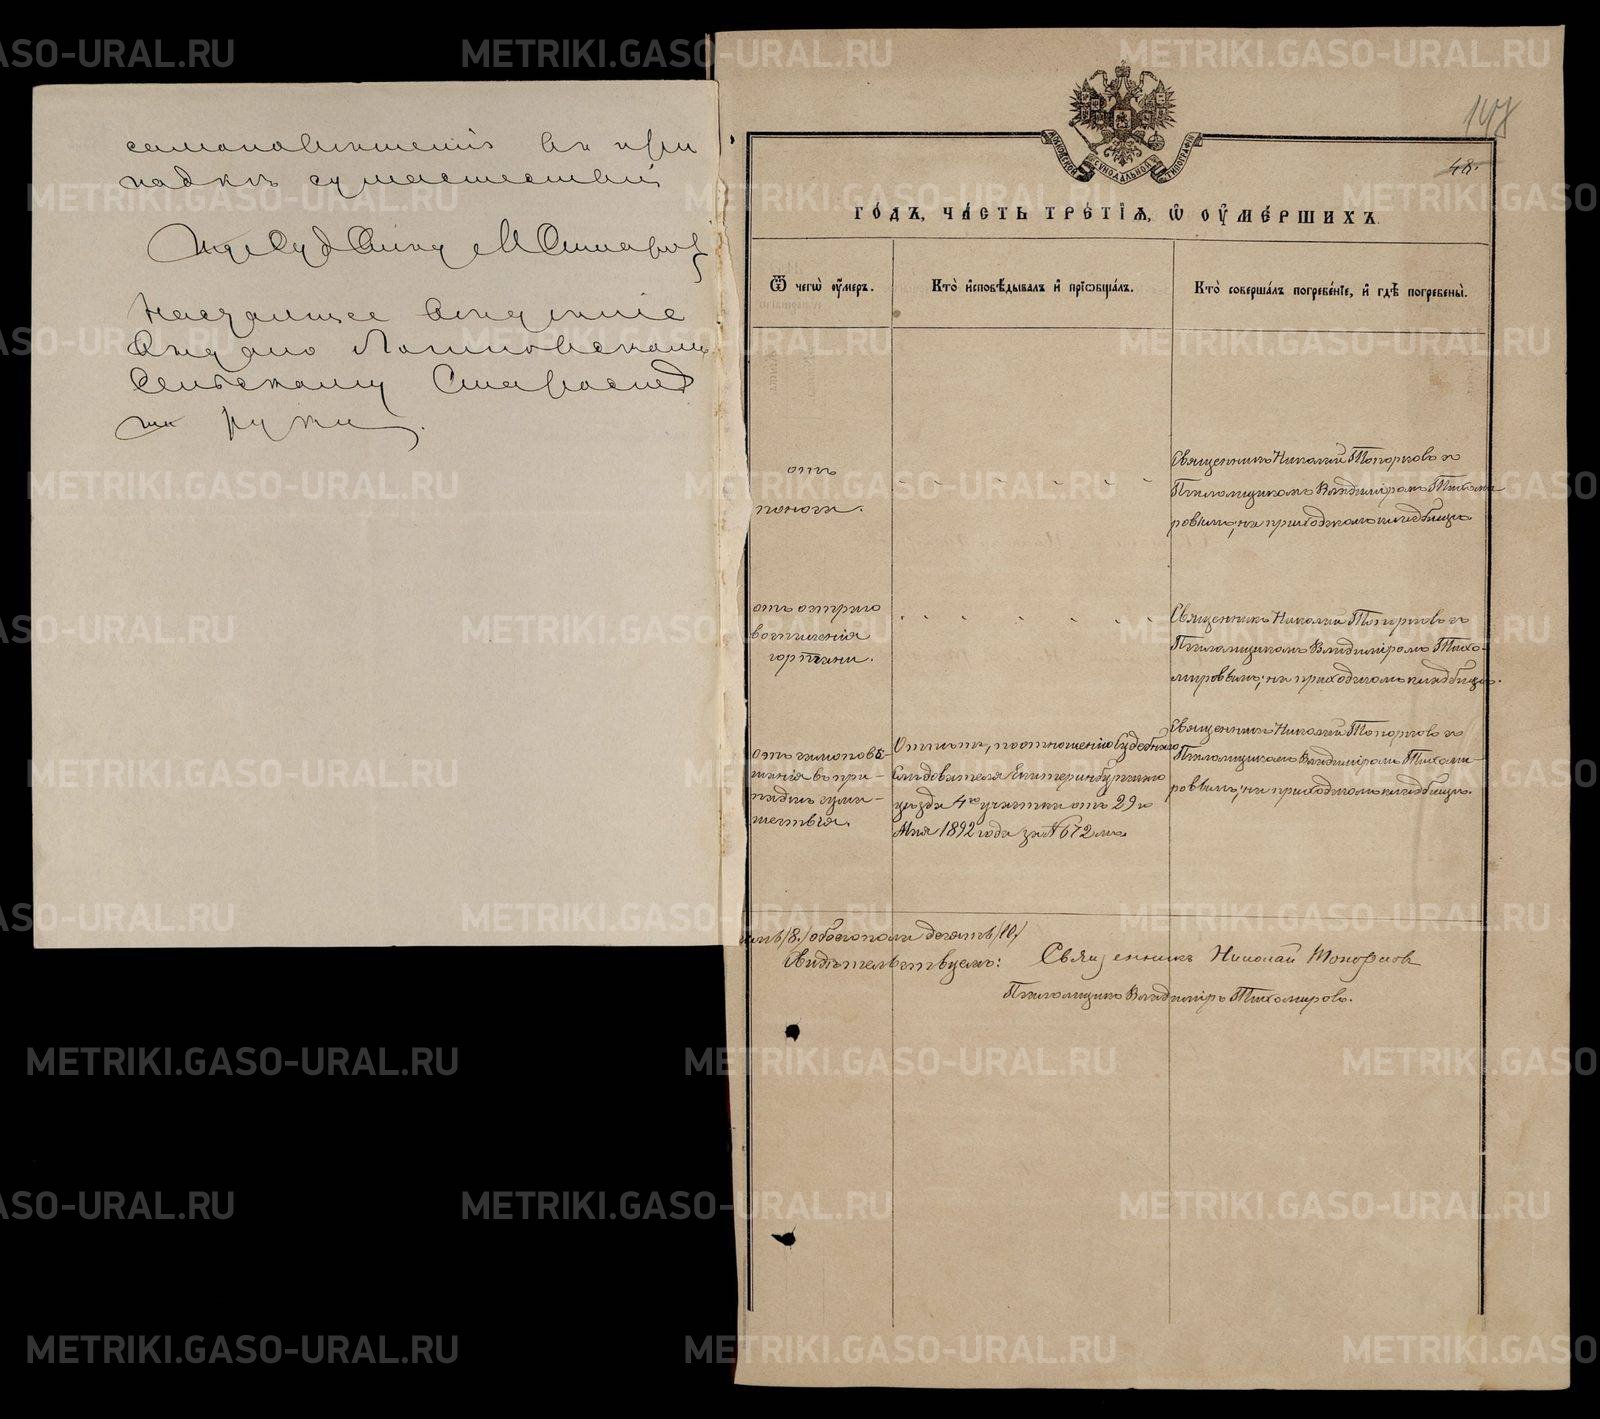 самоповѣшенія въ при
падкѣ сумасшествія
Настоящее
Сельскому Старостѣ
на руки.
148
48.
МОСКОВСКОЙ СѴНОДАЛЬНОЙ ТИПОГРАФІИ
ГО́ДЪ, ЧА́СТЬ ТРЕ́ТІѦ, Ѡ҆ ОУ҆МЕ́РШИХЪ.
Ѿ чегѡ̀ оу҆́меръ.
Кто̀ и҆сповѣ́дывалъ и҆ прїѡбща́лъ.
Кто̀ соверша́лъ погребе́нїе, и҆ гдѣ̀ погребены̀.
отъ
поноса.
Священникъ Николай Топорковъ съ
Псаломщикомъ Владиміромъ Тихоми
ровымъ; на приходскомъ кладбищѣ
отъ остраго
воспаленія
гортани.
Священникъ Николай Топорковъ съ
Псаломщикомъ Владиміромъ Тихо-
мировымъ; на приходскомъ кладбищѣ.
отъ самоповѣ-
шенія въ при-
падкѣ сума-
шествія.
Отпѣтъ, по отношенію Судебнаго
Слѣдователя Екатеринбургскаго
уѣзда 4го участка отъ 29го
Мая 1892 года за № 672мъ.
Священникъ Николай Топорковъ съ
Псаломщикомъ Владиміромъ Тихоми-
ровымъ; на приходскомъ кладбищѣ.
/8./ обоего пола десять /10./
Свидѣтельствуемъ: Священникъ Николай Топорков
Псаломщикъ Владиміръ Тихомировъ.
METRIKI.GASO-URAL.RU